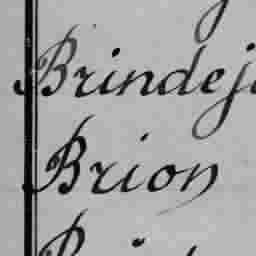 Brindej
Brion